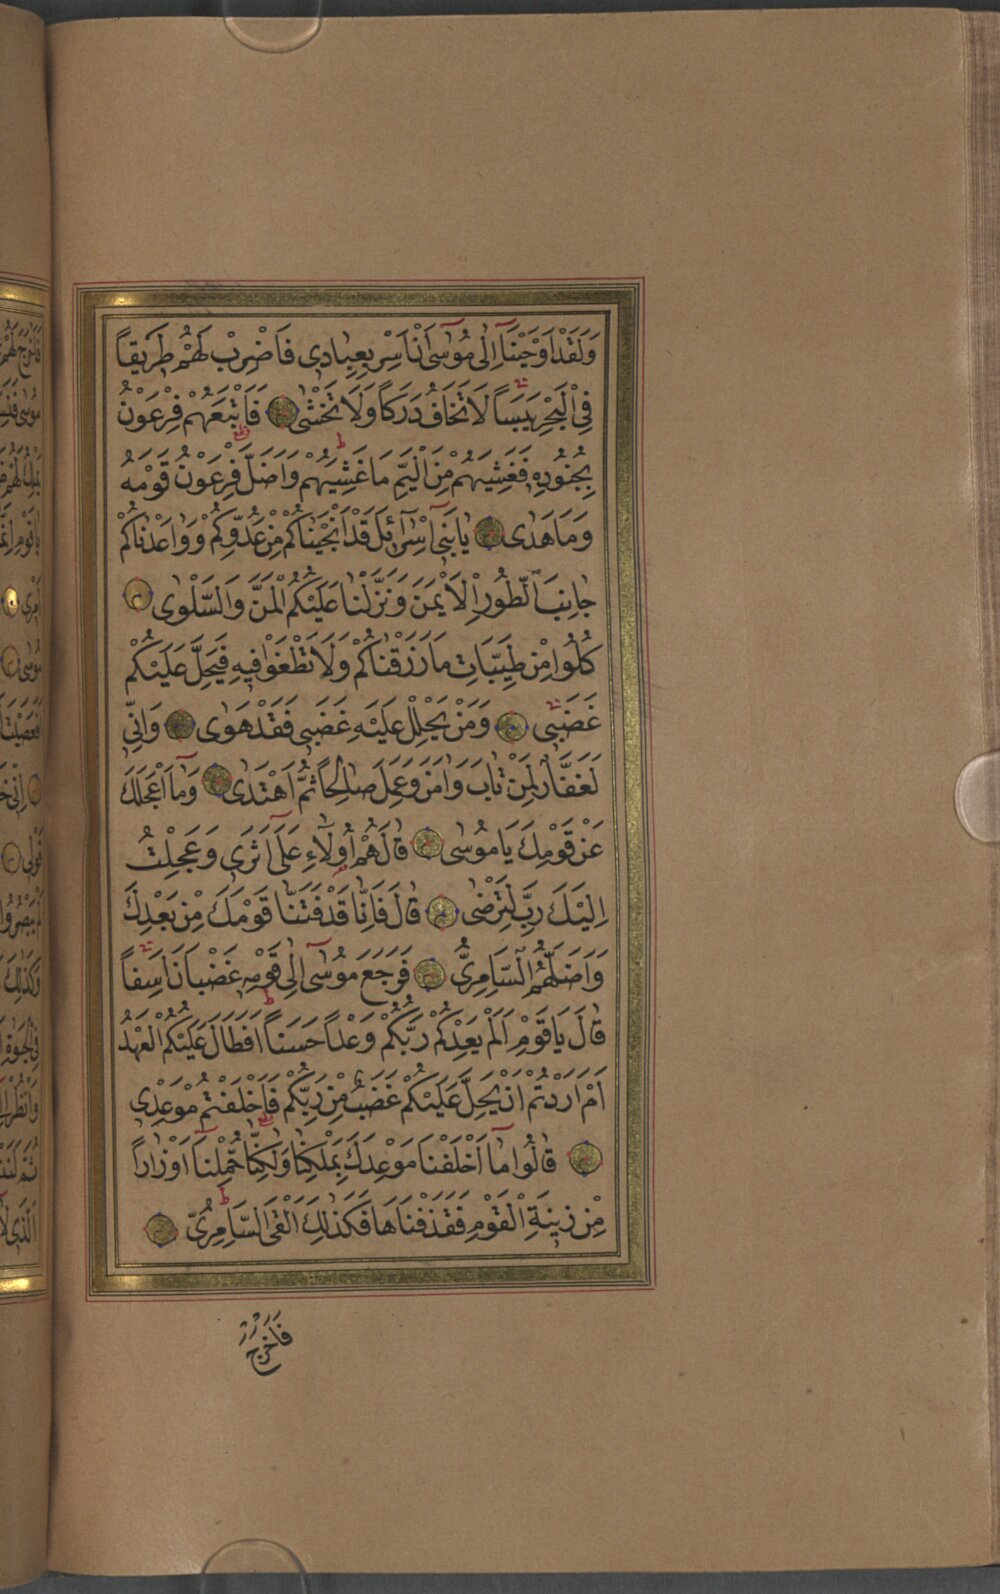 وَلَقَدْ اَوْحَيْنَٓا اِلٰى مُوسٰٓى اَنْ اَسْرِ بِعِبَادٖى فَاضْرِبْ لَهُمْ طَرٖيقًا
فِى الْبَحْرِ يَبَسًا لَا تَخَافُ دَرَكًا وَلَا تَخْشٰى فَاَتْبَعَهُمْ فِرْعَوْنُ
بِجُنُودِهٖ فَغَشِيَهُمْ مِنَ الْيَمِّ مَا غَشِيَهُمْ وَاَضَلَّ فِرْعَوْنُ قَوْمَهُ
وَمَا هَدٰى يَا بَنٖٓى اِسْرَٓائٖلَ قَدْ اَنْجَيْنَاكُمْ مِنْ عَدُوِّكُمْ وَوٰاعَدْنَاكُمْ
جَانِبَ الطُّورِ الْاَيْمَنَ وَنَزَّلْنَا عَلَيْكُمُ الْمَنَّ وَالسَّلْوٰى
كُلُوا مِنْ طَيِّبَاتِ مَا رَزَقْنَاكُمْ وَلَا تَطْغَوْا فٖيهِ فَيَحِلَّ عَلَيْكُمْ
غَضَبٖى وَمَنْ يَحْلِلْ عَلَيْهِ غَضَبٖى فَقَدْ هَوٰى وَاِنّٖى
لَغَفَّارٌ لِمَنْ تَابَ وَاٰمَنَ وَعَمِلَ صَالِحًا ثُمَّ اهْتَدٰى وَمَٓا اَعْجَلَكَ
عَنْ قَوْمِكَ يَا مُوسٰى قَالَ هُمْ اُو۬لَٓاءِ عَلٰٓى اَثَرٖى وَعَجِلْتُ
اِلَيْكَ رَبِّ لِتَرْضٰى قَالَ فَاِنَّا قَدْ فَتَنَّا قَوْمَكَ مِنْ بَعْدِكَ
وَاَضَلَّهُمُ السَّامِرِىُّ فَرَجَعَ مُوسٰٓى اِلٰى قَوْمِهٖ غَضْبَانَ اَسِفًا
قَالَ يَا قَوْمِ اَلَمْ يَعِدْكُمْ رَبُّكُمْ وَعْدًا حَسَنًا اَفَطَالَ عَلَيْكُمُ الْعَهْدُ
اَمْ اَرَدْتُمْ اَنْ يَحِلَّ عَلَيْكُمْ غَضَبٌ مِنْ رَبِّكُمْ فَاَخْلَفْتُمْ مَوْعِدٖى
قَالُوا مَٓا اَخْلَفْنَا مَوْعِدَكَ بِمَلْكِنَا وَلٰكِنَّا حُمِّلْنَٓا اَوْزَارًا
مِنْ زٖينَةِ الْقَوْمِ فَقَذَفْنَاهَا فَكَذٰلِكَ اَلْقَى السَّامِرِىُّ
فَاَخْرَجَ